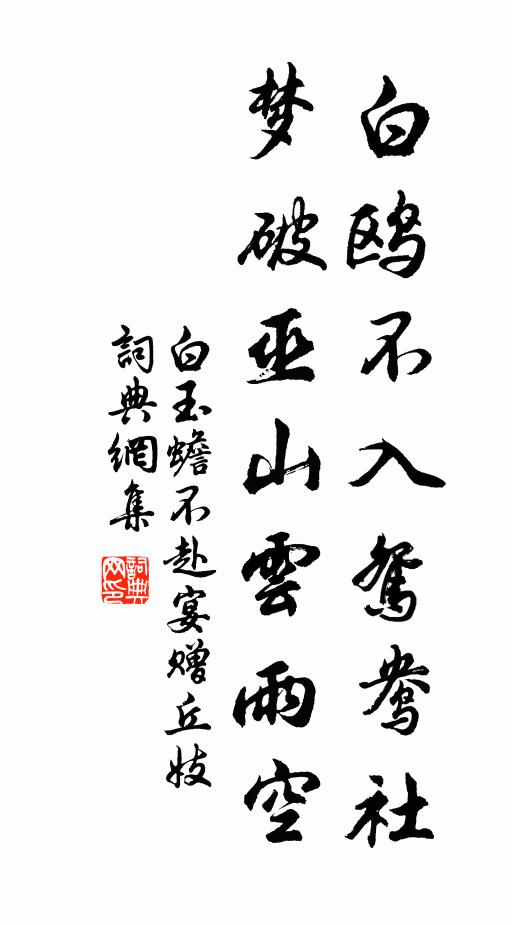 白鷗不入鴛鴦社
梦破巫山雲雨空
白玉蟾不赴宴赠丘妓
詞典網集
詞典网印